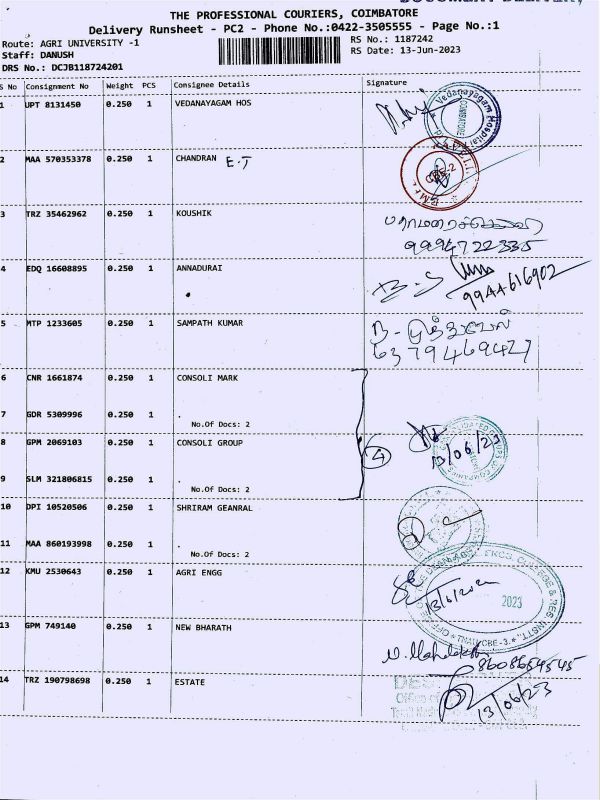 THE PROFESSIONAL COURIERS, COIMBATORE
Delivery Runsheet - PC2 - Phone No.:0422-3505555 - Page No.:1
Route: AGRI UNIVERSITY -1
RS No.: 1187242
Staff: DANUSH
RS Date: 13-Jun-2023
DRS No.: DCJB118724201
S No Consignment No Weight PCS Consignee Details Signature
1 UPT 8131450 0.250 1 VEDANAYAGAM HOS
Vedanayagam Hospital
COIMBATORE
2 MAA 570353378 0.250 1 CHANDRAN E.T
CBE-2
3 TRZ 35462962 0.250 1 KOUSHIK
9994722335
4 EDQ 16608895 0.250 1 ANNADURAI
B-S
9944616902
5 MTP 1233605 0.250 1 SAMPATH KUMAR
B - முத்துவேல்
6379469427
6 CNR 1661874 0.250 1 CONSOLI MARK
7 GDR 5309996 0.250 1 .
No.Of Docs: 2
8 GPM 2069103 0.250 1 CONSOLI GROUP
4
13/06/23
9 SLM 321806815 0.250 1 .
No.Of Docs: 2
10 DPI 10520506 0.250 1 SHRIRAM GEANRAL
11 MAA 860193998 0.250 1 .
No.Of Docs: 2
12 KMU 2530643 0.250 1 AGRI ENGG
OFFICE OF THE DEAN COLLEGE & RES. INSTT. * TNAU, CBE-3. *
2023
13 GPM 749140 0.250 1 NEW BHARATH
8608654545
14 TRZ 190798698 0.250 1 ESTATE
Office of
13/06/23